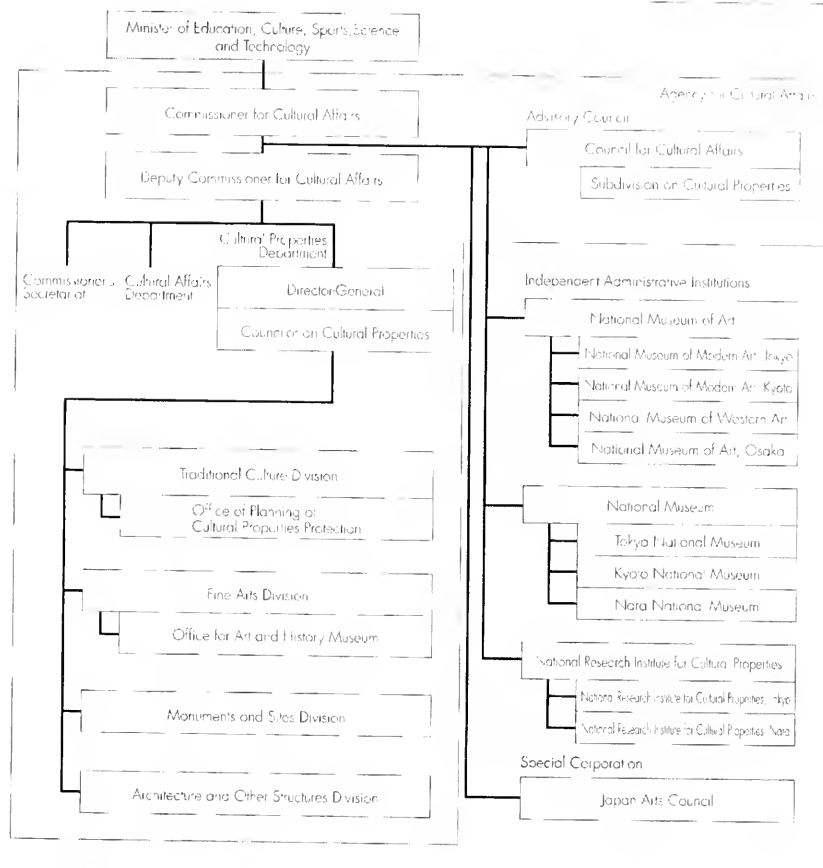 Minister of Education, Culture, Sports, Science
and Technology
Agency for Cultural Affairs
Commissioner for Cultural Affairs
Deputy Commissioner for Cultural Affairs
Commissioner's
Secretariat
Cultural Affairs
Department
Cultural Properties
Department
Director-General
Councilor on Cultural Properties
Traditional Culture Division
Office of Planning of
Cultural Properties Protection
Fine Arts Division
Office for Art and History Museum
Monuments and Sites Division
Architecture and Other Structures Division
Advisory Council
Council for Cultural Affairs
Subdivision on Cultural Properties
Independent Administrative Institutions
National Museum of Art
National Museum of Modern Art, Tokyo
National Museum of Modern Art, Kyoto
National Museum of Western Art
National Museum of Art, Osaka
National Museum
Tokyo National Museum
Kyoto National Museum
Nara National Museum
National Research Institute for Cultural Properties
National Research Institute for Cultural Properties, Tokyo
National Research Institute for Cultural Properties, Nara
Special Corporation
Japan Arts Council